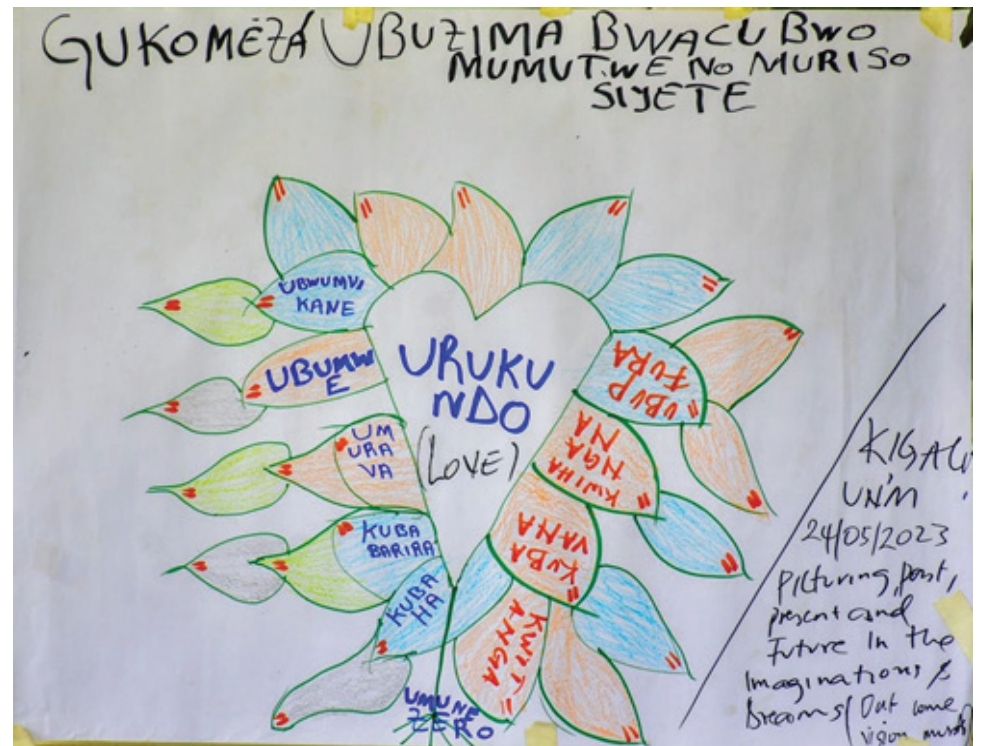 GUKOMEZA UBUZIMA BWACU BWO
MUMUTWE NO MURISO
SIYETE
UBWUMVI
KANE
UBUMW
E
UM
URA
VA
KUBA
BARIRA
KUBA
HA
URUKU
NDO
(LOVE)
UBUP
FURA
KWIHA
NGA
NA
KUBA
VANA
KWIT
ANGA
UMUNE
ZERO
KIGALI
UNM
24/05/2023
Picturing past,
present and
Future In the
Imaginations &
Dreams (Out come
vision